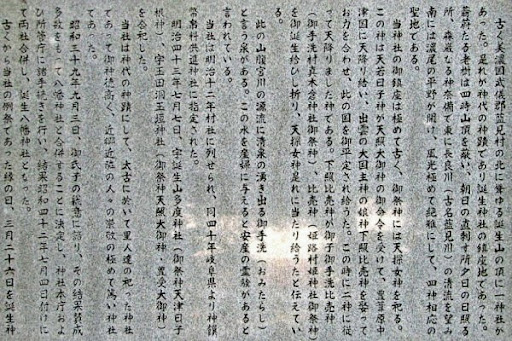 古く美濃国武儀郡藍見村の北に聳ゆる誕生山の頂に一神社が
あった。是れが神代の神蹟であり誕生神社の鎮座地であった。
蒼蒼たる老樹は四時山頂を蔽い、朝日の直刺す所夕日の日照る
所、森厳なる神奈備で東に長良川（古名藍見川）の清流を望み
南には濃尾の平野が開け、風光極めて絶雅にして、四神相応の
聖地である。
当神社の御鎮座は極めて古く、御祭神に天探女神を祀る。
この神は天若日子神が天照大御神の御命令を受けて、豊葦原中
津国に天降り給い、出雲の大国主神の娘神下照比売神を娶って
お力を合わせ、此の国を御平定され給うた。この時に二神に従
って天降りました神である。下照比売神が御子御手洗比売神
（御手洗村真木倉神社御祭神）、比売神（姫路村姫神社御祭神）
が誕生し給いし折り、天探女神是れに当たり給うたと伝えてい
る。
此の山腹宮川の源流に清泉の湧き出る御手洗（おみたらし）
と言う泉がある。この水を産婦に与えると安産の霊験があると
言われている。
当社は明治十二年村社に列せられ、同四十年岐阜県より神饌
幣帛料供進神社に指定された。
明治四十三年七月七日、字誕生山多度神社（御祭神天津日子
根神）、字玉田洞玉垣神社（御祭神天照大御神・豊受大御神）
を合祀した。
当社は神代の神蹟にして、太古に於いて里人達の祀った神社
であって御神徳高く、近郷近隣の人々の崇敬の極めて篤い神社
であった。
昭和三十九年五月三日、御氏子の総意に諮り、その結果賛成
多数をもって八幡神社と合併することに決定し、神社本庁およ
び所管庁に諸手続きを行い、結果昭和四十二年七月四日付けに
て両社合併し、誕生八幡神社となった。
古くから当社の例祭であった縁の日、三月二十六日を誕生神